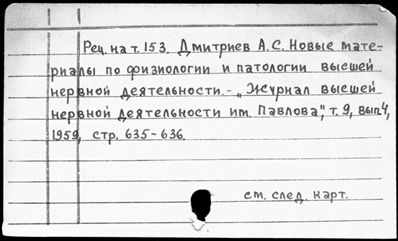 Рец. на т. 153. Дмитриев А.С. Новые мате-
риалы по физиологии и патологии высшей
нервной деятельности. - „Журнал высшей
нервной деятельности им. Павлова", т. 9, вып. 4,
1959, стр. 635-636.
см. след. карт.